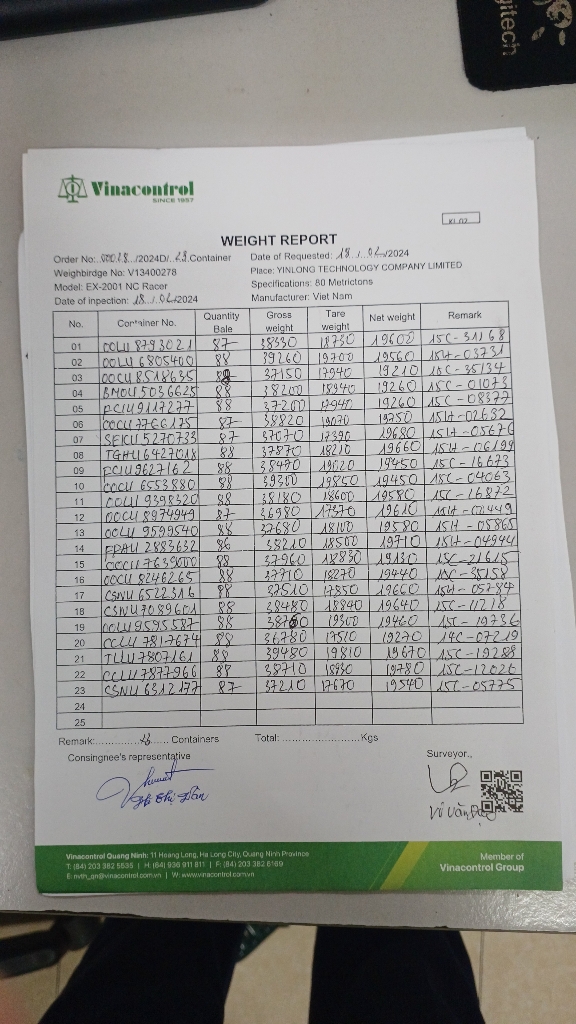 gitech
Vinacontrol
SINCE 1957
KL02
WEIGHT REPORT
Order No: 00028/2024D/ 23 Container Date of Requested: 18/02/2024
Weighbirdge No: V13400278 Place: YINLONG TECHNOLOGY COMPANY LIMITED
Model: EX-2001 NC Racer Specifications: 80 Metrictons
Date of inpection: 18/02/2024 Manufacturer: Viet Nam
No. Container No. Quantity Bale Gross weight Tare weight Net weight Remark
01 OOLU 8793021 87 38330 18730 19600 15C-31168
02 OOLU 6805400 88 39260 19700 19560 15H-03731
03 OOCU 8518635 88 37150 17940 19210 15C-35134
04 BMOU 5036625 88 38200 18940 19260 15C-01073
05 PCIU 9117277 88 37200 17940 19260 15C-08377
06 OOCU 7766175 87 38820 19070 19750 15H-02632
07 SEKU 5270733 87 37070 17390 19680 15H-05676
08 TGHU 6427018 88 37870 18210 19660 15H-06199
09 PCIU 9627162 88 38470 19020 19450 15C-16673
10 CCCU 6553880 88 39300 19850 19450 15C-04063
11 OOLU 9398320 88 38180 18600 19580 15C-16872
12 OOCU 8974949 87 36980 17370 19610
13 OOLU 9599540 88 37680 18100 19580 15H-05865
14 PPAU 2883632 86 38210 18500 19710 15H-04944
15 OOCU 7639000 88 37960 18830 19130 15C-21615
16 OOCU 8246265 88 37710 18270 19440 15C-35158
17 CSNU 6522316 88 37510 17850 19660 15H-05784
18 CSNU 7089601 88 38480 18840 19640 15C-11218
19 OOLU 9595587 88 38760 19300 19460 15C-19736
20 CCLU 7817674 88 36780 17510 19270 14C-07219
21 TLLU 7807161 88 39480 19810 19670 15C-19289
22 CCLU 7877966 88 38710 18930 19780 15C-12026
23 CSNU 6312177 87 37210 17670 19540 15C-05775
24
25
Remark: 23 Containers Total: Kgs
Consingnee's representative Surveyor.,
Vũ Văn
Vinacontrol Quang Ninh: 11 Hoang Long, Ha Long City, Quang Ninh Province
T: (84) 203 382 5535 | H: (84) 936 911 811 | F: (84) 203 382 6169
E: nvth_qn@vinacontrol.com.vn | W: www.vinacontrol.com.vn
Member of
Vinacontrol Group